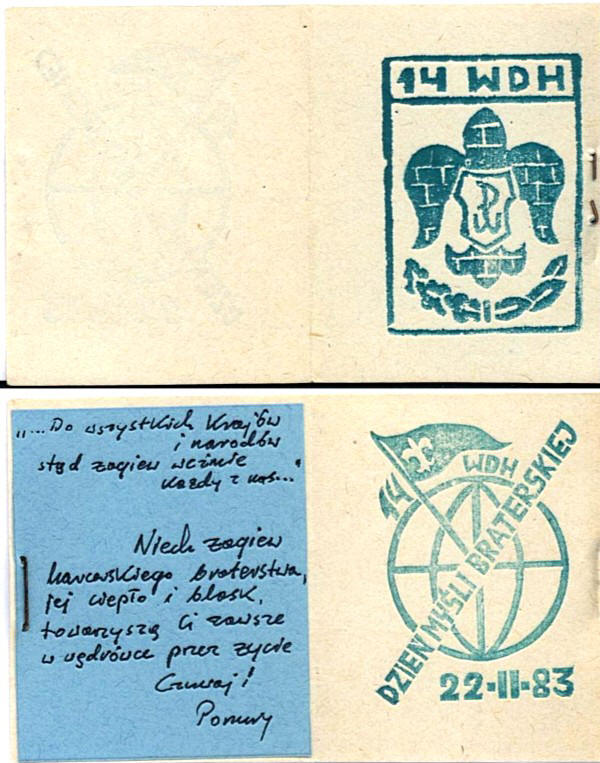 14 WDH
PW
„...Do wszystkich krajów
i narodów
stąd żagiew weźmie
każdy z nas..."
Niech żagiew
harcerskiego braterstwa,
jej ciepło i blask,
towarzyszą Ci zawsze
w wędrówce przez życie
Czuwaj!
Ponury
14 WDH
DZIEŃ MYŚLI BRATERSKIEJ
22-II-83